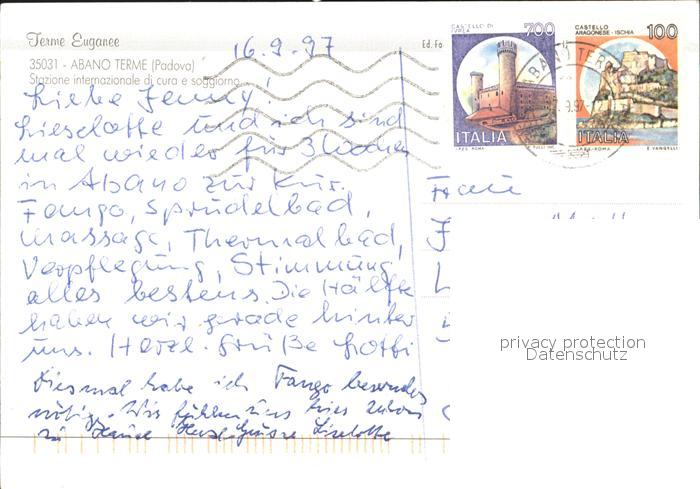 Terme Euganee
35031 - ABANO TERME (Padova)
Stazione internazionale di cura e soggiorno
Ed. Fo
16.9.97
CASTELLO DI
IVREA
700
ITALIA
I.P.Z.S. ROMA
CASTELLO
ARAGONESE - ISCHIA
100
ITALIA
I.P.Z.S. - ROMA
E. VANGELLI
9.97
Liebe Jenny!
Lieselotte und ich sind
mal wieder für 3 Wochen
in Abano zur Kur.
Fango, Sprudelbad,
Massage, Thermalbad,
Verpflegung, Stimmung,
alles bestens. Die Hälfte
haben wir gerade hinter
uns. Herzl. Grüße Lotti
Diesmal habe ich Fango besonders
nötig. Wir fühlen uns hier schon
zu Hause Herzl. Grüsse Liselotte
Frau
privacy protection
Datenschutz